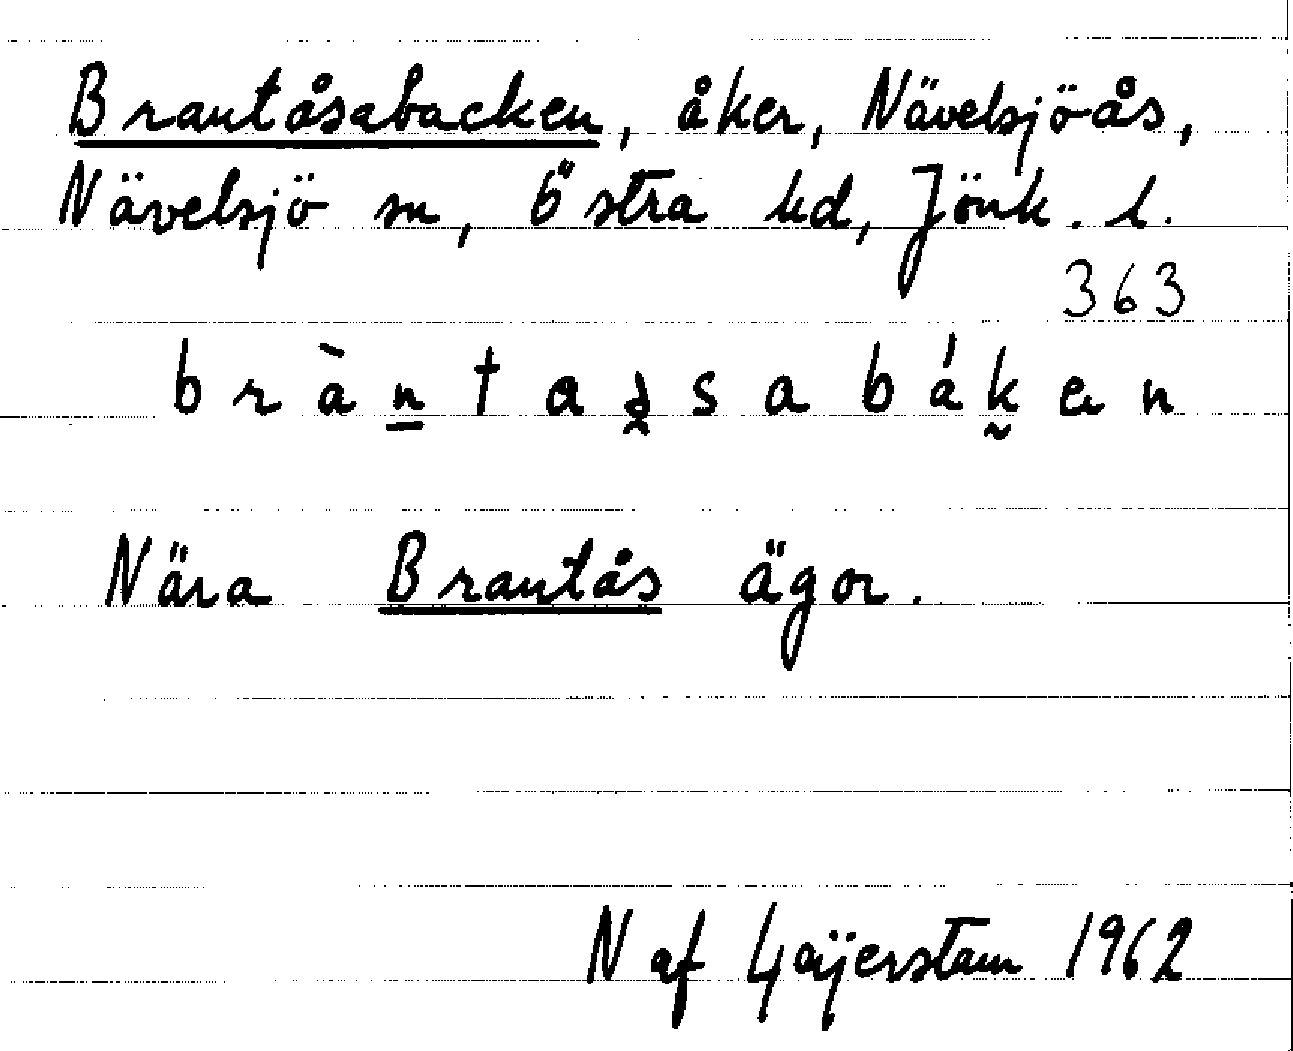 Brantåsabacken, åker, Nävelsjöås,
Nävelsjö sn, Östra hd, Jönk. l.
363
Nära Brantås ägor.
N af Geijerstam 1962